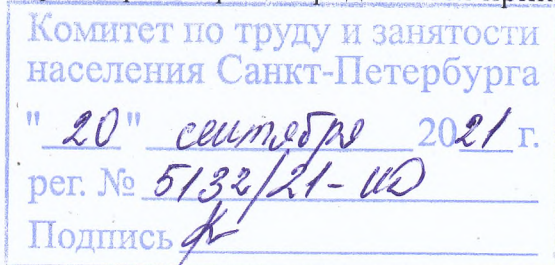 Комитет по труду и занятости
населения Санкт-Петербурга
"20" сентября 2021 г.
рег. № 5132/21-КД
Подпись